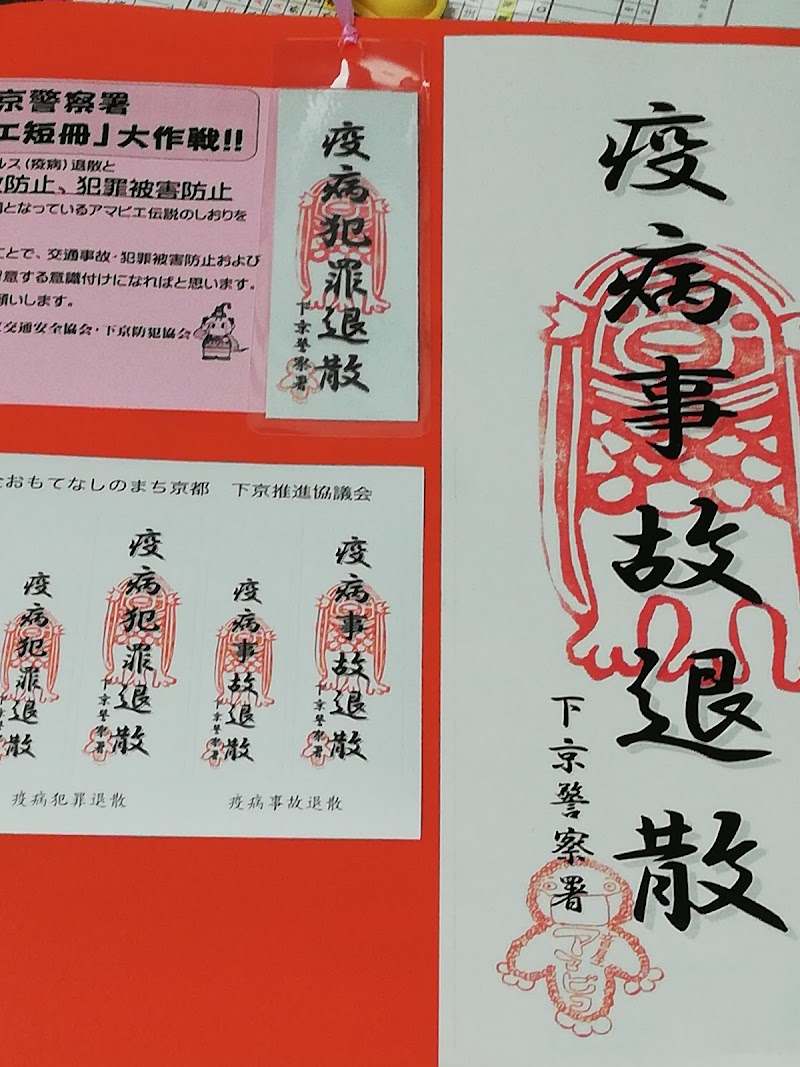 京警察署
エ短冊」大作戦!!
ルス(疫病)退散と
故防止、犯罪被害防止
となっているアマビエ伝説のしおりを
ことで、交通事故・犯罪被害防止および
意する意識付けになればと思います。
願いします。
交通安全協会・下京防犯協会
疫病犯罪退散
下京警察署
おもてなしのまち京都 下京推進協議会
疫病犯罪退散
疫病犯罪退散
下京警察署
疫病事故退散
下京警察署
疫病事故退散
下京警察署
疫病犯罪退散
疫病事故退散
疫病事故退散
下京警察署